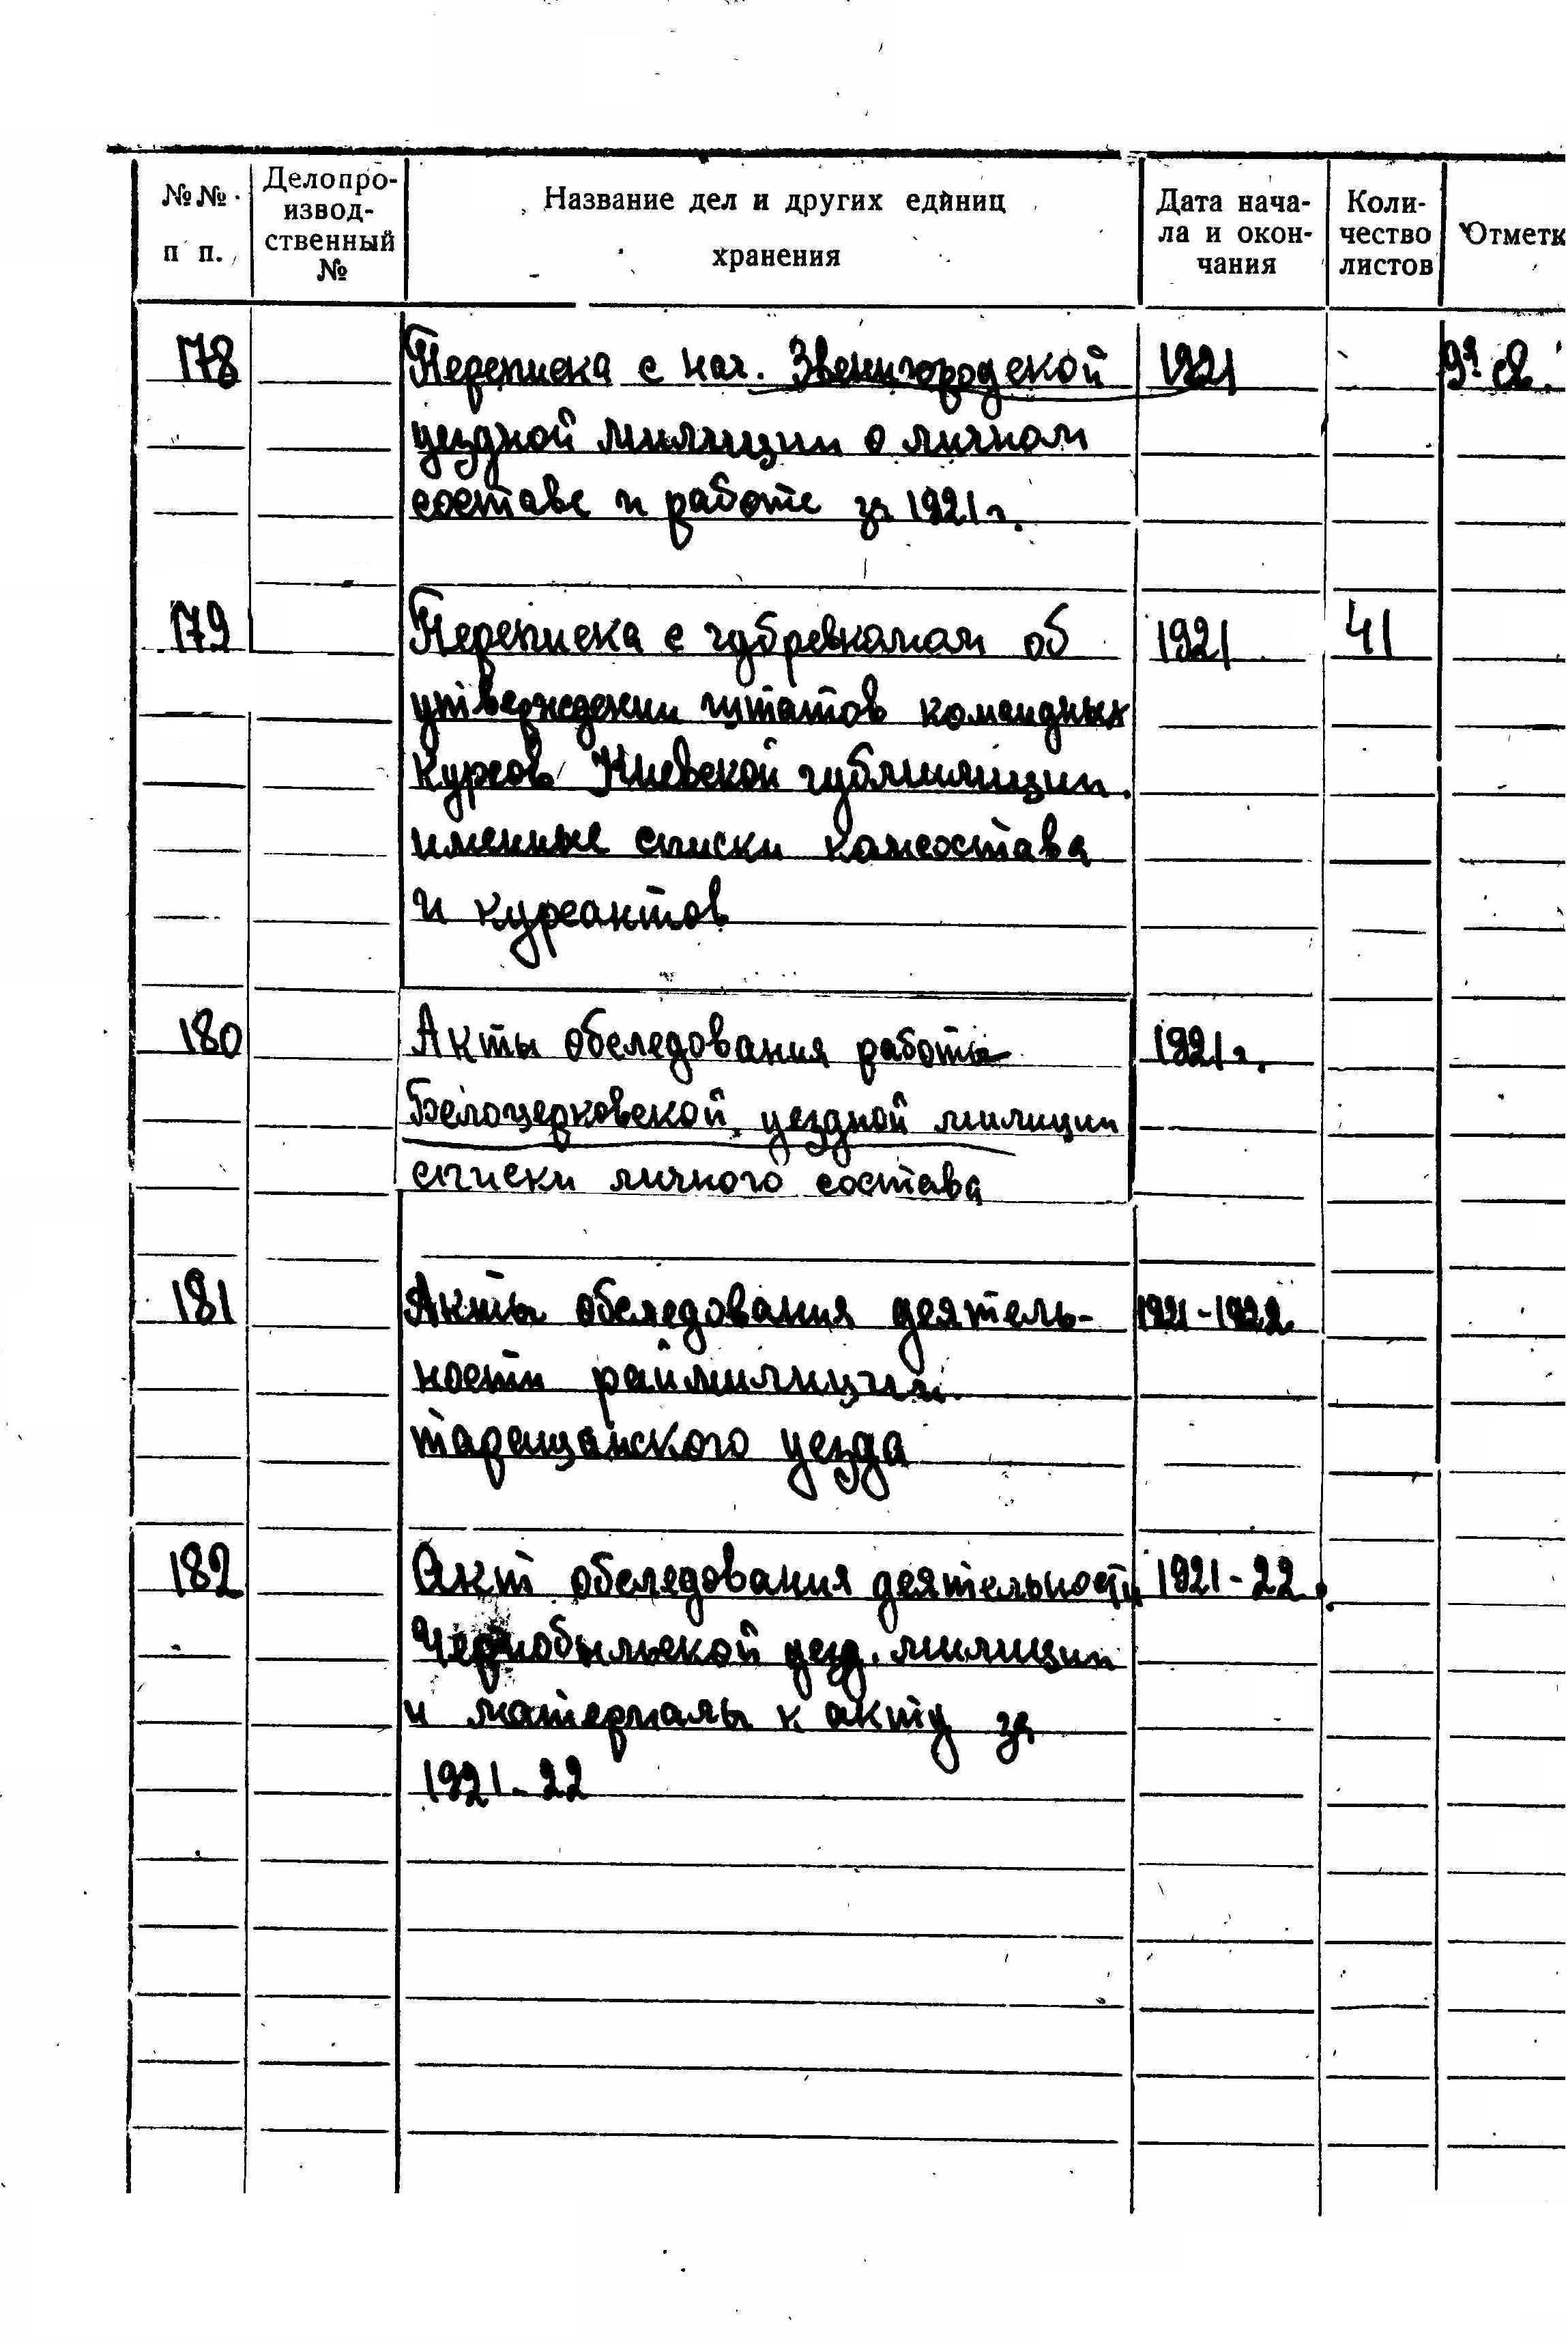 №№ п п.
Делопро-
извод-
ственный
№
Название дел и других единиц
хранения
Дата нача-
ла и окон-
чания
Коли-
чество
листов
Отметк
178 Переписка с нач. Звенигородской 1921
уездной милиции о личном
составе и работе за 1921 г.
179 Переписка с губревкомом об 1921 41
утверждении штатов командных
курсов Киевской губмилиции.
именные списки комсостава
и курсантов
180 Акты обследования работы 1921 г.
Белоцерковской уездной милиции
списки личного состава
181 Акты обследования деятель- 1921-1922
ности раймилиции
таращанского уезда
182 Акт обследования деятельности 1921-22
Чернобыльской уезд. милиции
и материалы к акту за
1921-22